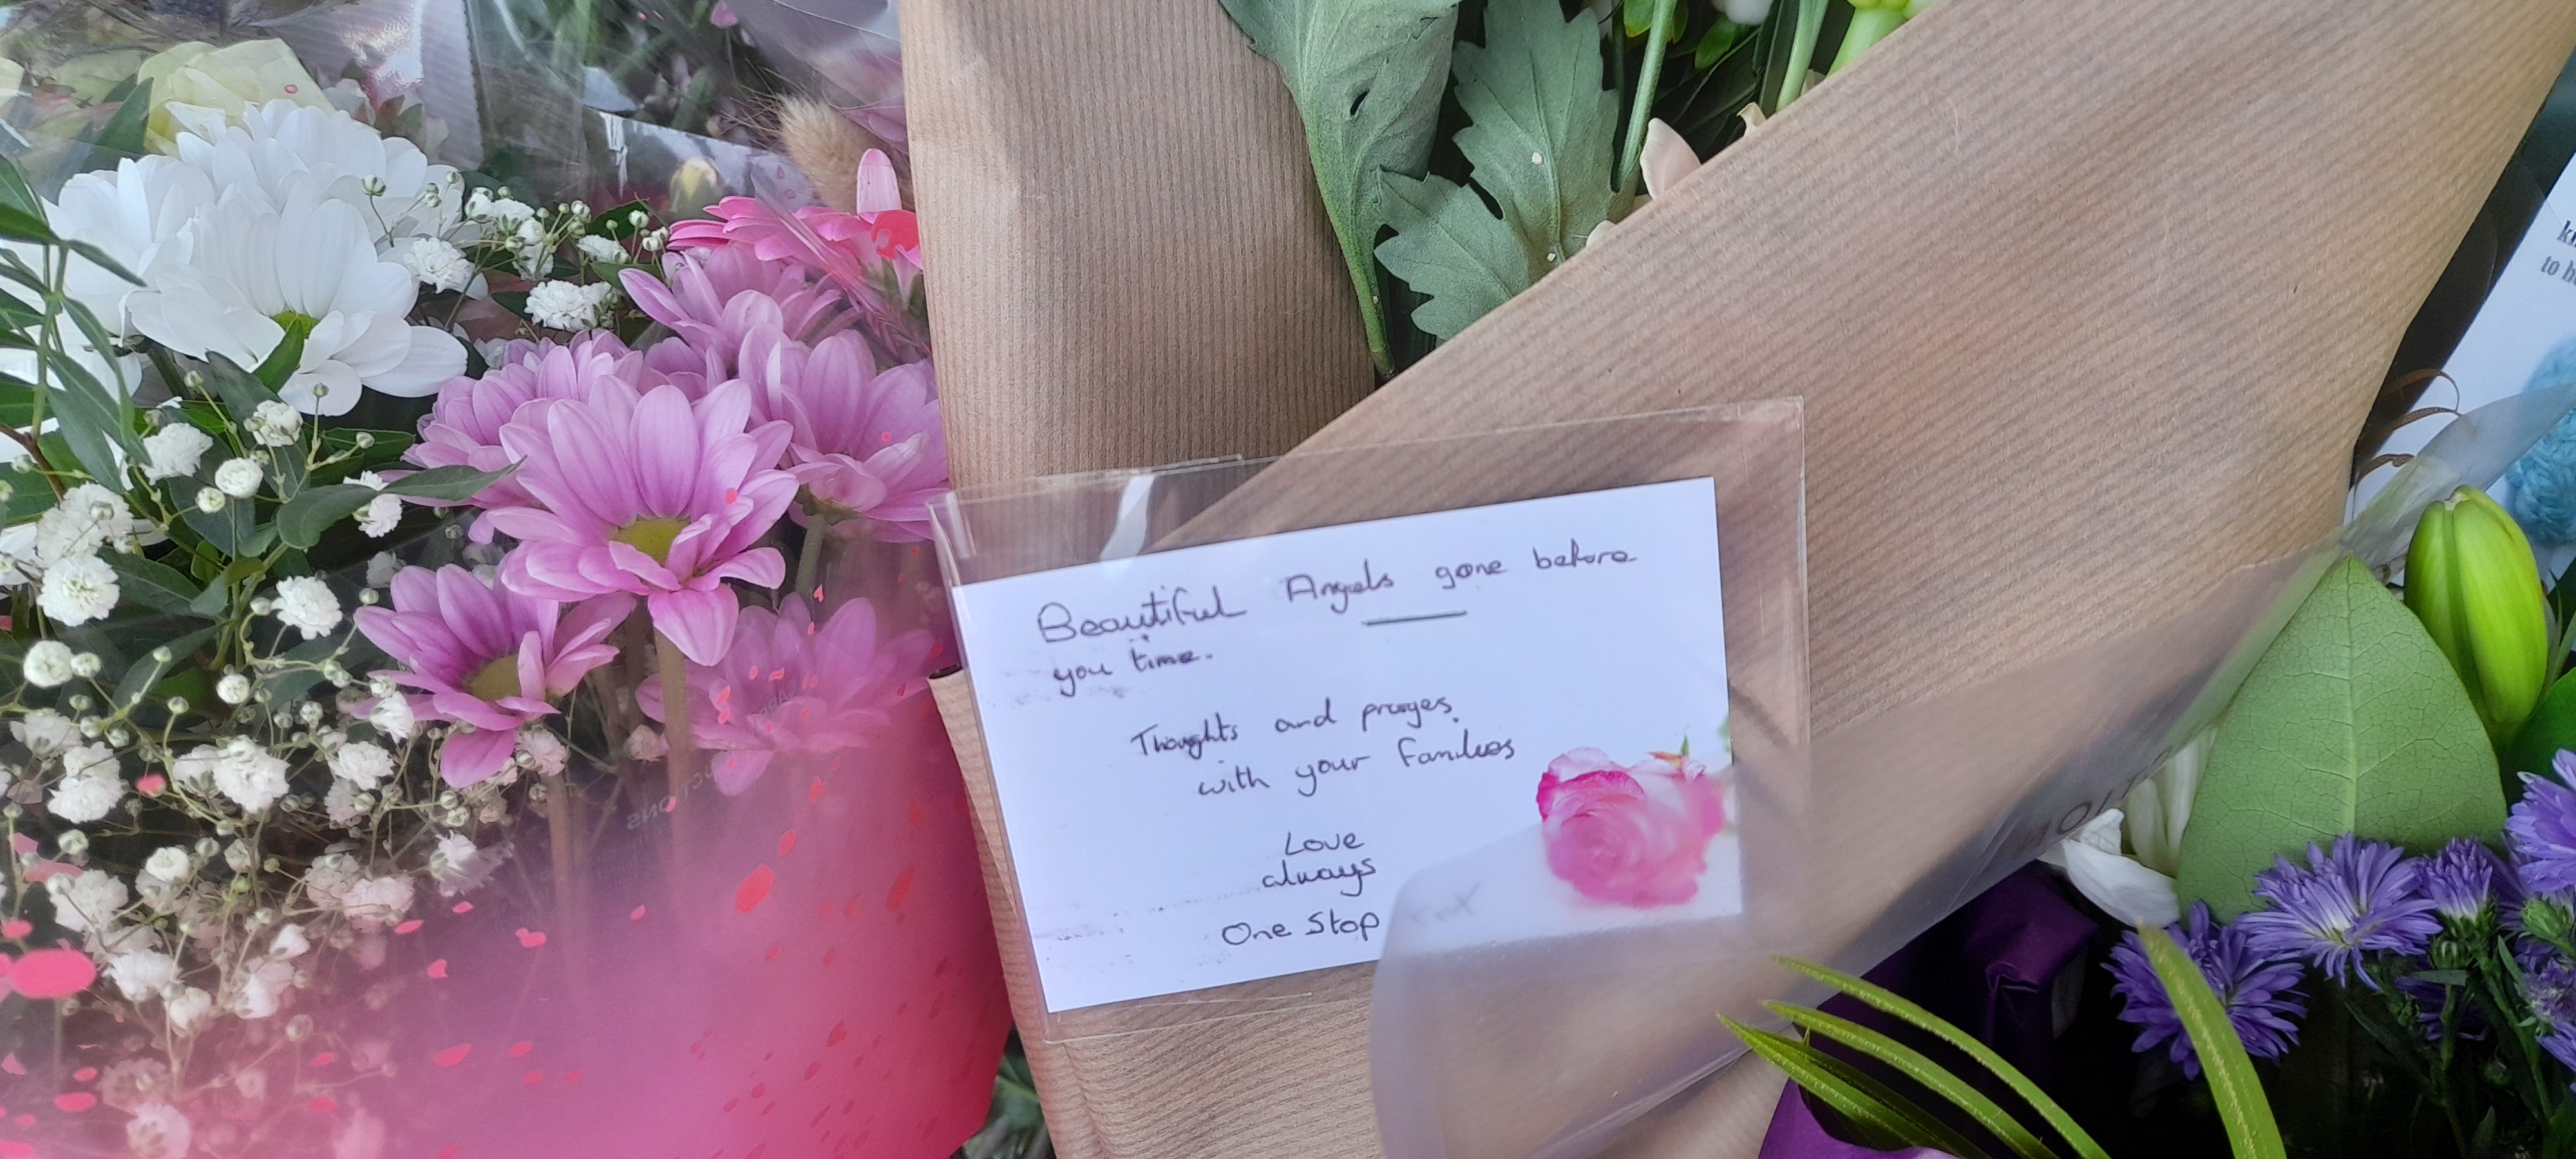 Beautiful Angels gone before
you time.
Thoughts and prayes.
with your families
Love
always
One Stop
to b